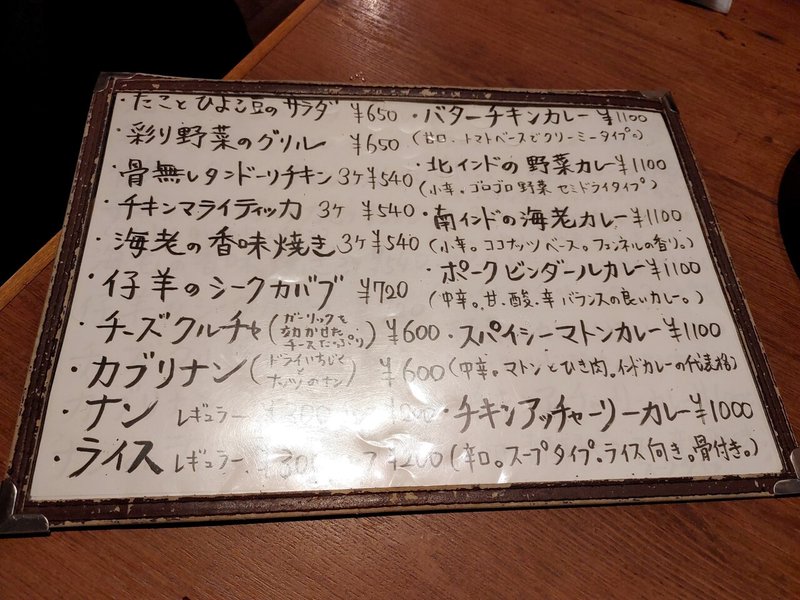 ・たことひよこ豆のサラダ ¥650
・彩り野菜のグリル ¥650
・骨無しタンドーリチキン 3ヶ ¥540
・チキンマライティッカ 3ヶ ¥540
・海老の香味焼き 3ヶ ¥540
・仔羊のシークカバブ ¥720
・チーズクルチャ (ガーリックを効かせたチーズたっぷり) ¥600
・カブリナン (ドライいちじくとナッツのナン) ¥600
・ナン レギュラー
・ライス レギュラー ¥200
・バターチキンカレー ¥1100
(甘口、トマトベースでクリーミータイプ。)
・北インドの野菜カレー ¥1100
(小辛。ゴロゴロ野菜 セミドライタイプ)
・南インドの海老カレー ¥1100
(小辛。ココナッツベース。フェンネルの香り。)
・ポークビンダールカレー ¥1100
(中辛。甘、酸、辛バランスの良いカレー。)
・スパイシーマトンカレー ¥1100
(中辛。マトンとひき肉。インドカレーの代表格)
・チキンアッチャーリーカレー ¥1000
(辛口。スープタイプ。ライス向き。骨付き。)